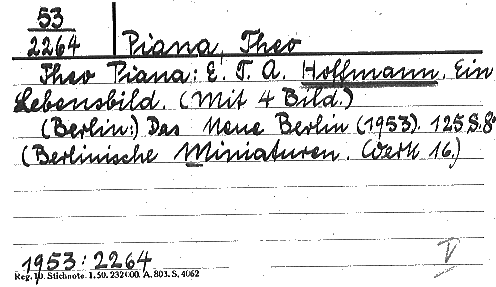 53
2264
Piana, Theo
Theo Piana: E. T. A. Hoffmann. Ein
Lebensbild. (Mit 4 Bild.)
(Berlin:) Das Neue Berlin (1953). 125 S. 8°
(Berlinische Miniaturen. Werk 16.)
1953: 2264
V
Reg. 10. Stichnote. 1. 50. 232000. A. 803. S. 4062